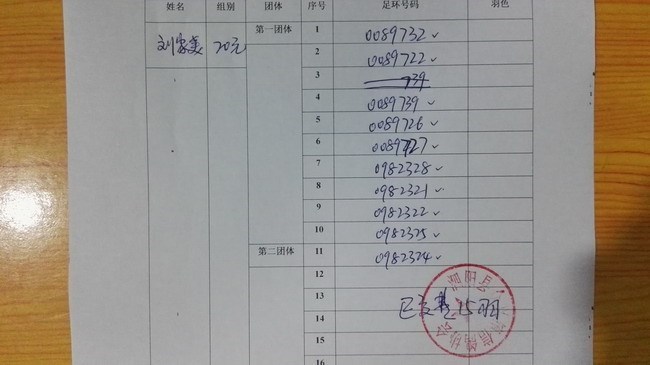 姓名 组别 团体 序号 足环号码 羽色
刘家美 20元 第一团体 1 0089732
2 0089722
3 739
4 0089739
5 0089726
6 0089727
7 0982328
8 0982321
9 0982322
10 0982325
第二团体 11 0982324
12
13
14
15
16
15羽
泗阳县 信鸽协会